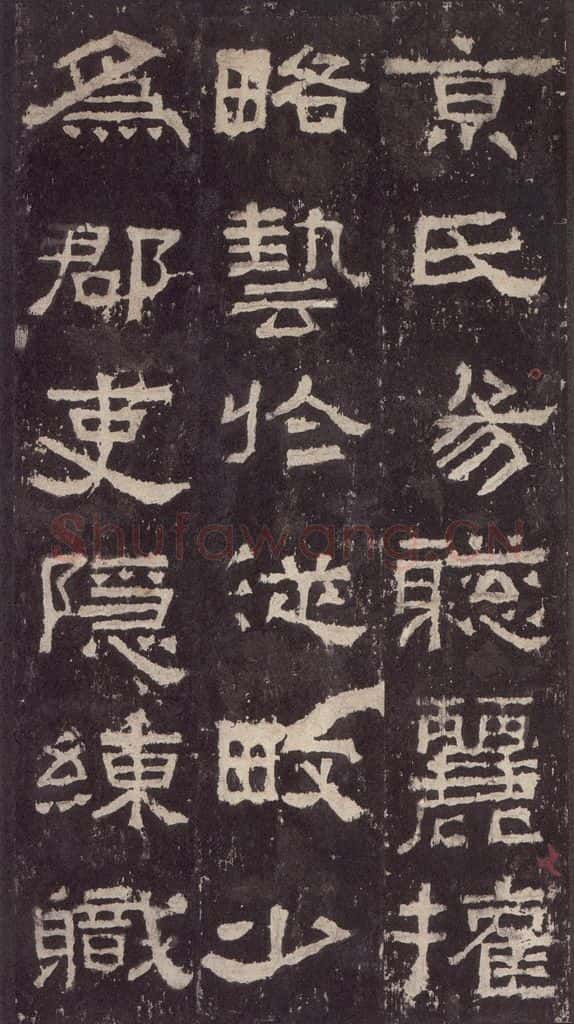 京氏易聰麗權
略藝於從畋少
為郡吏隱練職
Shufawang.CN